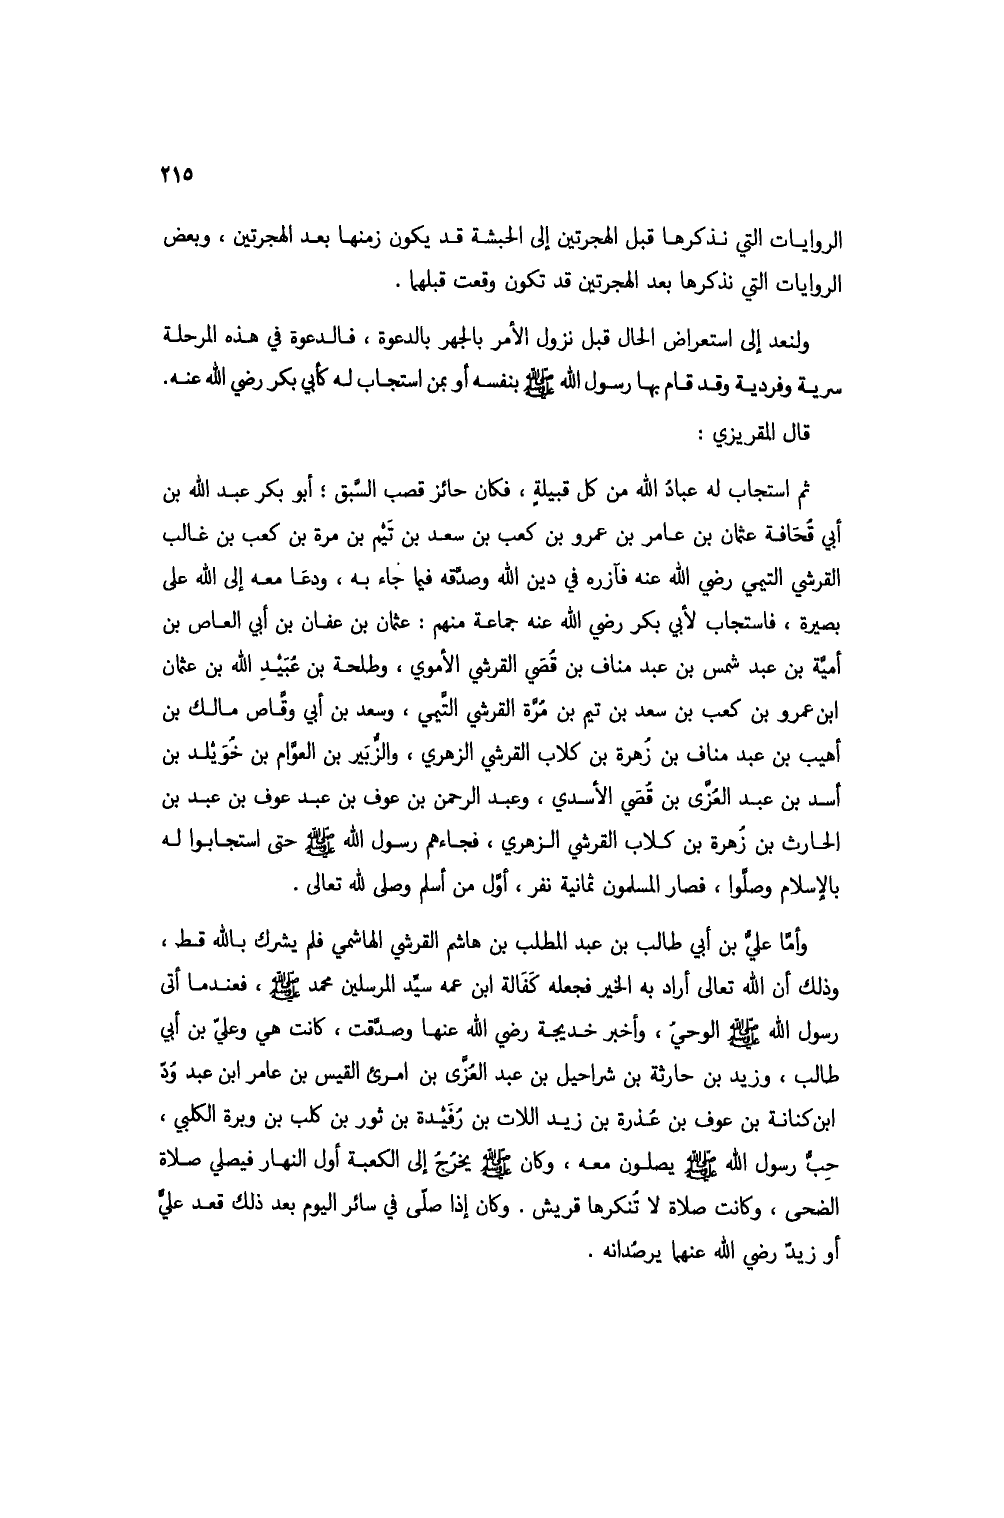 ٢١٥
الروايات التي نذكرها قبل الهجرتين إلى الحبشة قد يكون زمنها بعد الهجرتين ، وبعض
الروايات التي نذكرها بعد الهجرتين قد تكون وقعت قبلهما .
ولنعد إلى استعراض الحال قبل نزول الأمر بالجهر بالدعوة ، فالدعوة في هذه المرحلة
سرية وفردية وقد قام بها رسول الله ﷺ بنفسه أو بمن استجاب له كأبي بكر رضي الله عنه.
قال المقريزي :
ثم استجاب له عبادُ الله من كل قبيلةٍ ، فكان حائز قصب السَّبق ؛ أبو بكر عبد الله بن
أبي قُحَافة عثمان بن عامر بن عمرو بن كعب بن سعد بن تَيْم بن مرة بن كعب بن غالب
القرشي التيمي رضي الله عنه فآزره في دين الله وصدَّقه فيما جاء به ، ودعَا معه إلى الله على
بصيرة ، فاستجاب لأبي بكر رضي الله عنه جماعة منهم : عثمان بن عفان بن أبي العاص بن
أميَّة بن عبد شمس بن عبد مناف بن قُصَي القرشي الأموي ، وطلحة بن عُبَيْدِ الله بن عثمان
ابن عمرو بن كعب بن سعد بن تيم بن مُرَّة القرشي التَّيمي ، وسعد بن أبي وقَّاص مالك بن
أهيب بن عبد مناف بن زُهرة بن كلاب القرشي الزهري ، والزُّبَير بن العوَّام بن خُوَيْلد بن
أسد بن عبد العُزَّى بن قُصَي الأسدي ، وعبد الرحمن بن عوف بن عبد عوف بن عبد بن
الحارث بن زُهرة بن كلاب القرشي الزهري ، فجاءهم رسول الله ﷺ حتى استجابوا له
بالإسلام وصلَّوا ، فصار المسلمون ثمانية نفر ، أوَّل من أسلم وصلى لله تعالى .
وأمَّا عليُّ بن أبي طالب بن عبد المطلب بن هاشم القرشي الهاشمي فلم يشرك بالله قط ،
وذلك أن الله تعالى أراد به الخير فجعله كَفَالة ابن عمه سيِّد المرسلين محمد ﷺ ، فعندما أتى
رسول الله ﷺ الوحيُ ، وأخبر خديجة رضي الله عنها وصدَّقت ، كانت هي وعليّ بن أبي
طالب ، وزيد بن حارثة بن شراحيل بن عبد العُزَّى بن امرئ القيس بن عامر ابن عبد وُدّ
ابن كنانة بن عوف بن عُذرة بن زيد اللات بن رُفَيْدة بن ثور بن كلب بن وبرة الكلبي ،
حِبُّ رسول الله ﷺ يصلون معه ، وكان ﷺ يخرُجُ إلى الكعبة أول النهار فيصلي صلاة
الضحى ، وكانت صلاة لا تُنكرها قريش . وكان إذا صلّى في سائر اليوم بعد ذلك قعد عليُّ
أو زيدٌ رضي الله عنهما يرصُدانه .